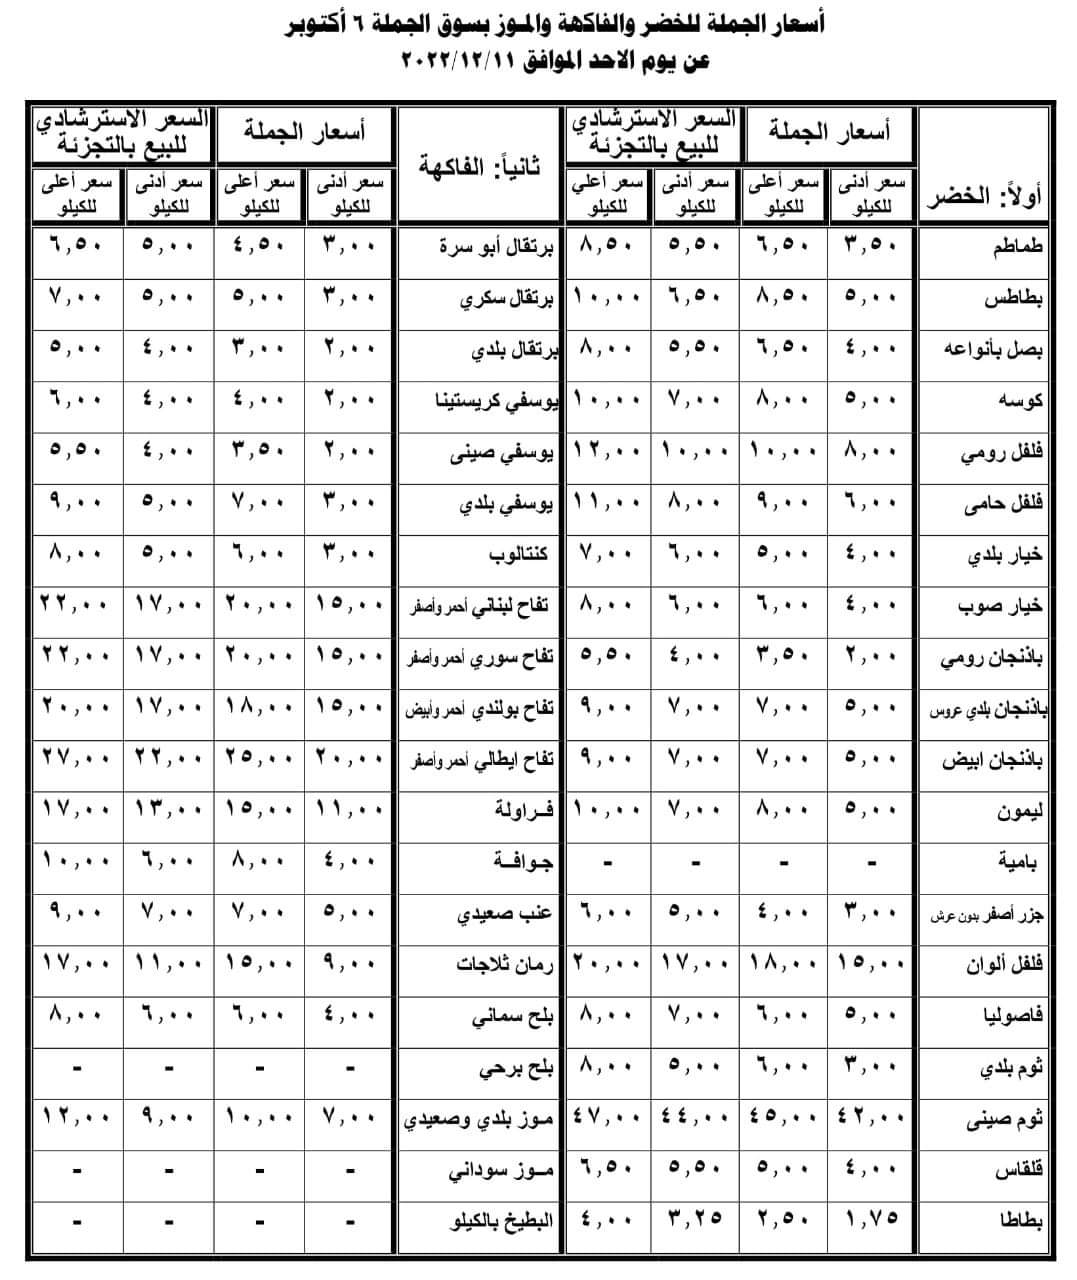 أسعار الجملة للخضر والفاكهة والموز بسوق الجملة ٦ أكتوبر
عن يوم الاحد الموافق ٢٠٢٢/١٢/١١
أولاً: الخضر | أسعار الجملة | السعر الاسترشادي للبيع بالتجزئة | ثانياً: الفاكهة | أسعار الجملة | السعر الاسترشادي للبيع بالتجزئة
سعر أدنى للكيلو | سعر أعلى للكيلو | سعر أدنى للكيلو | سعر أعلي للكيلو | سعر أدنى للكيلو | سعر أعلى للكيلو | سعر أدنى للكيلو | سعر أعلى للكيلو
طماطم ٣,٥٠ ٦,٥٠ ٥,٥٠ ٨,٥٠ برتقال أبو سرة ٣,٠٠ ٤,٥٠ ٥,٠٠ ٦,٥٠
بطاطس ٥,٠٠ ٨,٥٠ ٦,٥٠ ١٠,٠٠ برتقال سكري ٣,٠٠ ٥,٠٠ ٥,٠٠ ٧,٠٠
بصل بأنواعه ٤,٠٠ ٦,٥٠ ٥,٥٠ ٨,٠٠ برتقال بلدي ٢,٠٠ ٣,٠٠ ٤,٠٠ ٥,٠٠
كوسه ٥,٠٠ ٨,٠٠ ٧,٠٠ ١٠,٠٠ يوسفي كريستينا ٢,٠٠ ٤,٠٠ ٤,٠٠ ٦,٠٠
فلفل رومي ٨,٠٠ ١٠,٠٠ ١٠,٠٠ ١٢,٠٠ يوسفي صينى ٢,٠٠ ٣,٥٠ ٤,٠٠ ٥,٥٠
فلفل حامى ٦,٠٠ ٩,٠٠ ٨,٠٠ ١١,٠٠ يوسفي بلدي ٣,٠٠ ٧,٠٠ ٥,٠٠ ٩,٠٠
خيار بلدي ٤,٠٠ ٥,٠٠ ٦,٠٠ ٧,٠٠ كنتالوب ٣,٠٠ ٦,٠٠ ٥,٠٠ ٨,٠٠
خيار صوب ٤,٠٠ ٦,٠٠ ٦,٠٠ ٨,٠٠ تفاح لبناني أحمر وأصفر ١٥,٠٠ ٢٠,٠٠ ١٧,٠٠ ٢٢,٠٠
باذنجان رومي ٢,٠٠ ٣,٥٠ ٤,٠٠ ٥,٥٠ تفاح سوري أحمر وأصفر ١٥,٠٠ ٢٠,٠٠ ١٧,٠٠ ٢٢,٠٠
باذنجان بلدي عروس ٥,٠٠ ٧,٠٠ ٧,٠٠ ٩,٠٠ تفاح بولندي أحمر وأبيض ١٥,٠٠ ١٨,٠٠ ١٧,٠٠ ٢٠,٠٠
باذنجان ابيض ٥,٠٠ ٧,٠٠ ٧,٠٠ ٩,٠٠ تفاح ايطالي أحمر وأصفر ٢٠,٠٠ ٢٥,٠٠ ٢٢,٠٠ ٢٧,٠٠
ليمون ٥,٠٠ ٨,٠٠ ٧,٠٠ ١٠,٠٠ فـراولة ١١,٠٠ ١٥,٠٠ ١٣,٠٠ ١٧,٠٠
بامية - - - - جـوافـة ٤,٠٠ ٨,٠٠ ٦,٠٠ ١٠,٠٠
جزر أصفر بدون عرش ٣,٠٠ ٤,٠٠ ٥,٠٠ ٦,٠٠ عنب صعيدي ٥,٠٠ ٧,٠٠ ٧,٠٠ ٩,٠٠
فلفل ألوان ١٥,٠٠ ١٨,٠٠ ١٧,٠٠ ٢٠,٠٠ رمان ثلاجات ٩,٠٠ ١٥,٠٠ ١١,٠٠ ١٧,٠٠
فاصوليا ٥,٠٠ ٦,٠٠ ٧,٠٠ ٨,٠٠ بلح سماني ٤,٠٠ ٦,٠٠ ٦,٠٠ ٨,٠٠
ثوم بلدي ٣,٠٠ ٦,٠٠ ٥,٠٠ ٨,٠٠ بلح برحي - - - -
ثوم صينى ٤٢,٠٠ ٤٥,٠٠ ٤٤,٠٠ ٤٧,٠٠ مـوز بلدي وصعيدي ٧,٠٠ ١٠,٠٠ ٩,٠٠ ١٢,٠٠
قلقاس ٤,٠٠ ٥,٠٠ ٥,٥٠ ٦,٥٠ مـوز سوداني - - - -
بطاطا ١,٧٥ ٢,٥٠ ٣,٢٥ ٤,٠٠ البطيخ بالكيلو - - - -